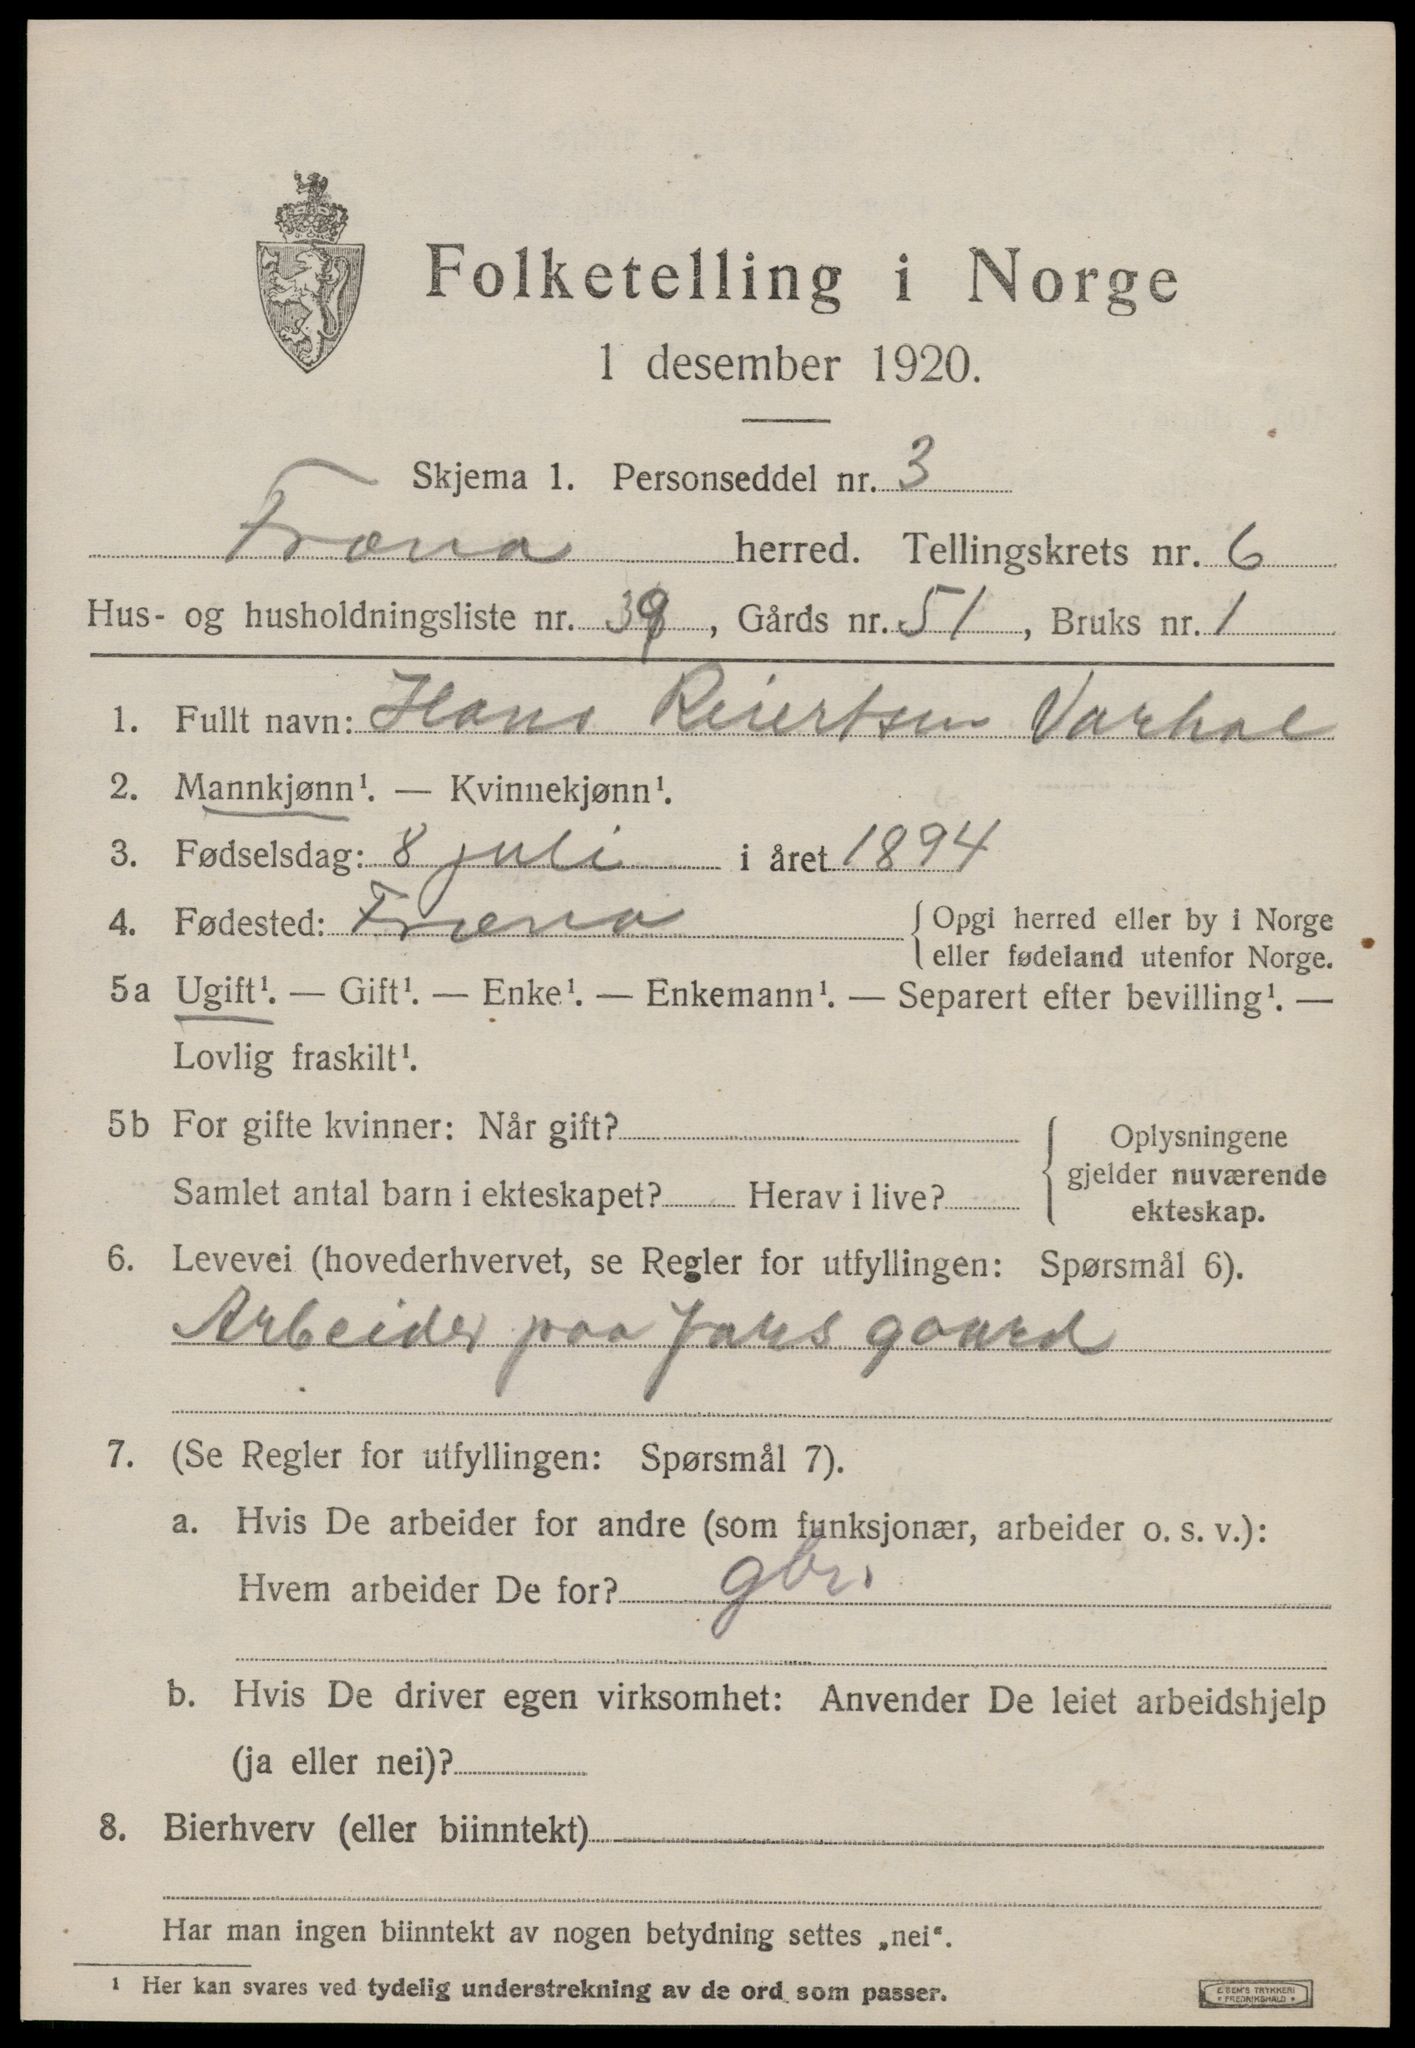 Folketelling i Norge
1 desember 1920.
Skjema 1. Personseddel nr. 3
Fræna herred. Tellingskrets nr. 6
Hus- og husholdningsliste nr. 39, Gårds nr. 51, Bruks nr. 1
1. Fullt navn: Hans Reiertsen Varhol
2. Mannkjønn¹. — Kvinnekjønn¹.
3. Fødselsdag: 8 juli i året 1894
4. Fødested: Fræna { Opgi herred eller by i Norge
eller fødeland utenfor Norge.
5a Ugift¹. — Gift¹. — Enke¹. — Enkemann¹. — Separert efter bevilling¹. —
Lovlig fraskilt¹.
5b For gifte kvinner: Når gift?
Samlet antal barn i ekteskapet? Herav i live?
{ Oplysningene
gjelder nuværende
ekteskap.
6. Levevei (hovederhvervet, se Regler for utfyllingen: Spørsmål 6).
Arbeider paa fars gaard
7. (Se Regler for utfyllingen: Spørsmål 7).
a. Hvis De arbeider for andre (som funksjonær, arbeider o. s. v.):
Hvem arbeider De for? gbr.
b. Hvis De driver egen virksomhet: Anvender De leiet arbeidshjelp
(ja eller nei)?
8. Bierhverv (eller biinntekt)
Har man ingen biinntekt av nogen betydning settes „nei“.
¹ Her kan svares ved tydelig understrekning av de ord som passer.
E. SEM'S TRYKKERI
FREDRIKSHALD